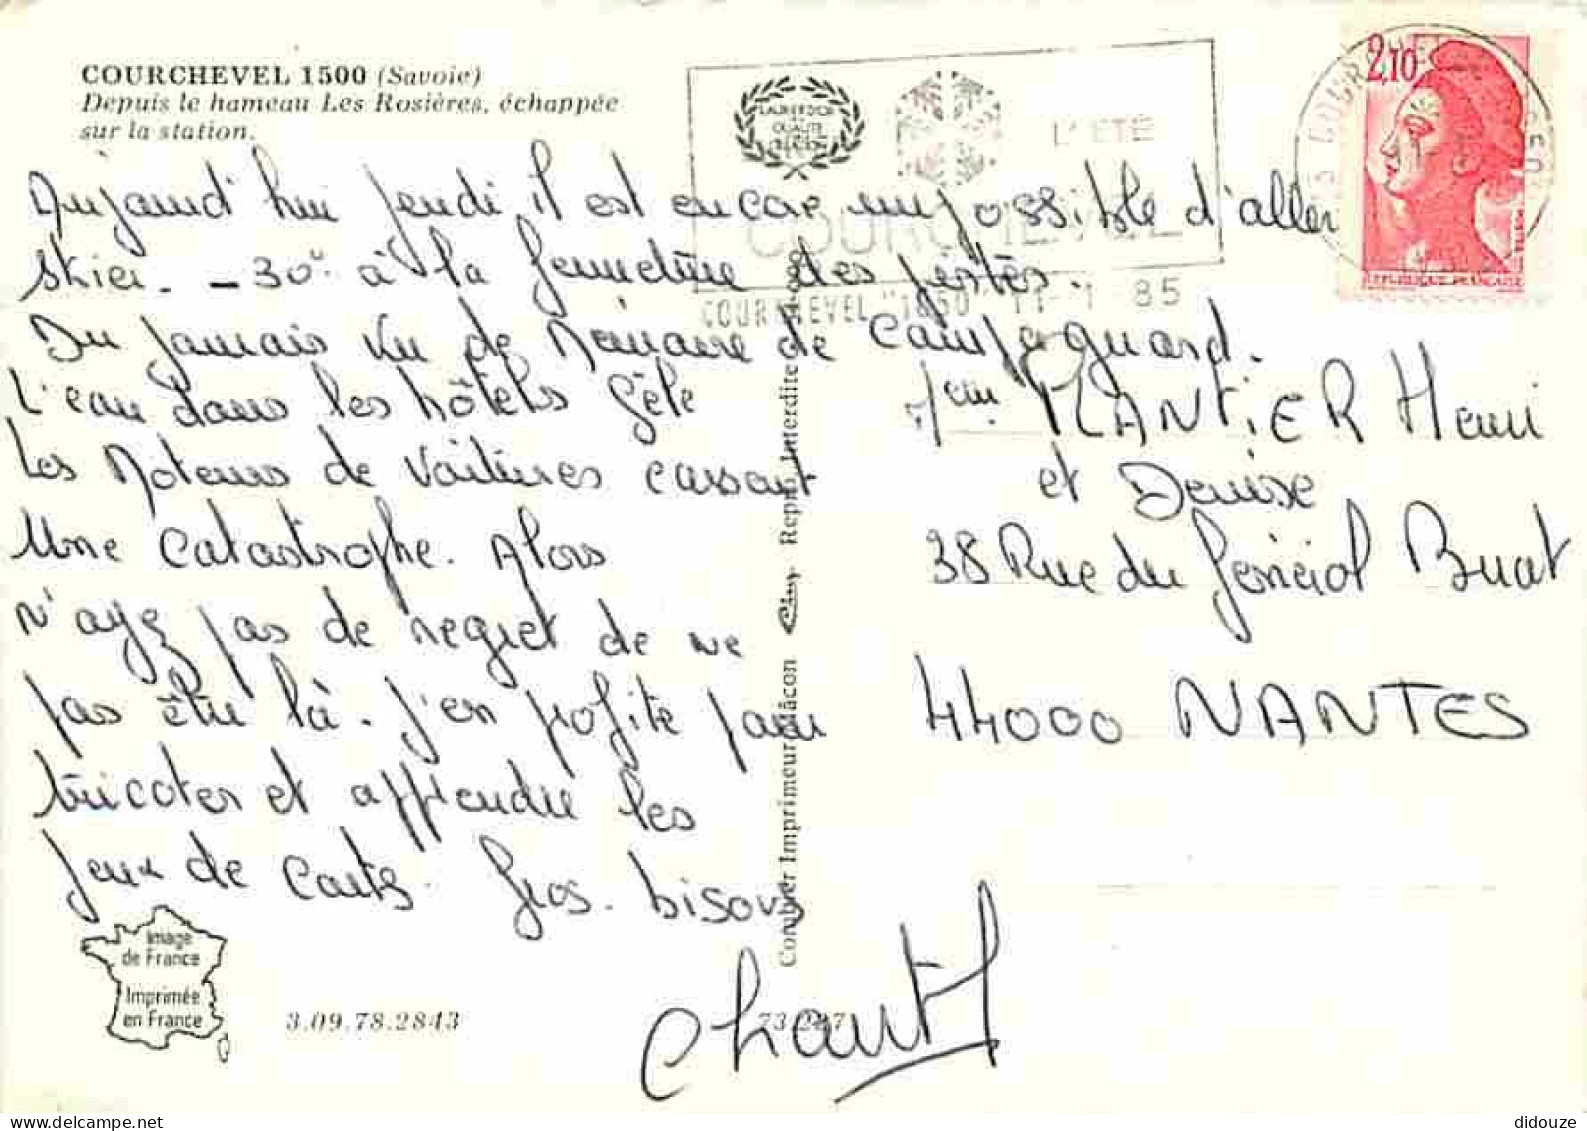 COURCHEVEL 1500 (Savoie)
Depuis le hameau Les Rosières, échappée
sur la station.
L'ÉTÉ
COURCHEVEL
COURCHEVEL "1850" 11-1 85
2,10
REPUBLIQUE FRANÇAISE
Aujourd'hui jeudi il est encore impossible d'aller
skier. -30° à la fermeture des pistes.
Du jamais vu de mémoire de Campagnard.
L'eau dans les hôtels gèle
Les Moteurs de voitures cassent
Une Catastrophe. Alors
n'ayez pas de regret de ne
pas être là. J'en profite pour
tricoter et apprendre les
jeux de cartes. Gros. bisous
Chantal
PLANTIER Henri
et Denise
38 Rue du Général Buat
44000 NANTES
Combier Imprimeur Mâcon Repro. Interdite
Image
de France
Imprimée
en France
3.09.78.2843
didouze